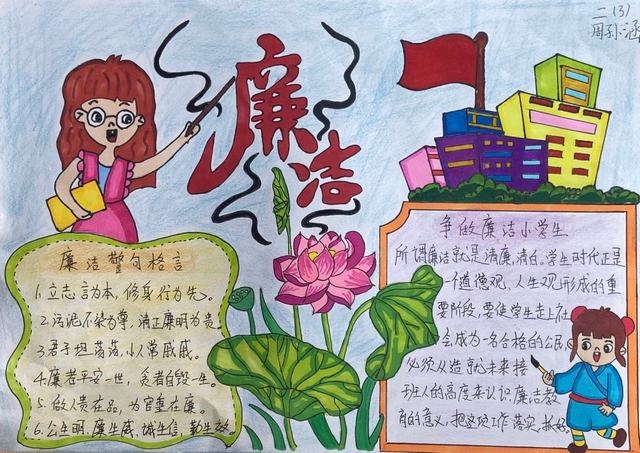 二(3)
周孙涵
廉洁
廉洁警句格言
1. 立志言为本，修身行为先。
2. 污泥不染为尊，清正廉明为贵。
3. 君子坦荡荡，小人常戚戚。
4. 廉者平安一世，贪者自毁一生。
5. 做人贵在品，为官重在廉。
6. 公生明、廉生威、诚生信、勤生效。
争做廉洁小学生
所谓廉洁就是清廉，清白，学生时代正是
一个道德观、人生观形成的重
要阶段，要使学生走上社
会成为一名合格的公民，
必须从造就未来接
班人的高度来认识廉洁教
育的意义，把这项工作落实、抓好。